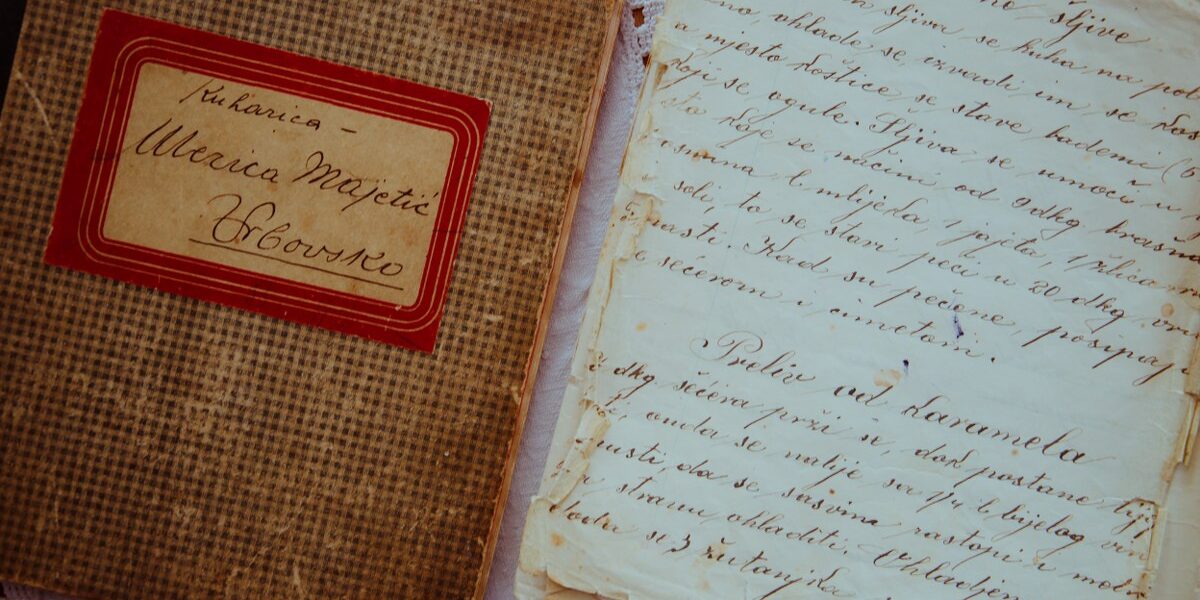 Kuharica –
Merica Majetić
Vrbovsko
sljive
sljiva se kuha na
ohlade se, izvadi im se
a mjesto koštice se stave bademi (
koji se ogule. Sljiva se umoči u
sto koje se načini od 9 dkg brasna
l mlijeka, 1 jajeta, 1 žlica
soli, to se stavi peči u 20 dkg
masti. Kad su pečene, posipaj
sečerom i cimetom.
Preliv od karamela
dkg sečera prži se, dok postane
onda se nalije sa 1/4 l bijelog
pusti, da se sasvim rastopi i
stranu ohladiti. Ohladjen
se 3 žutanjka